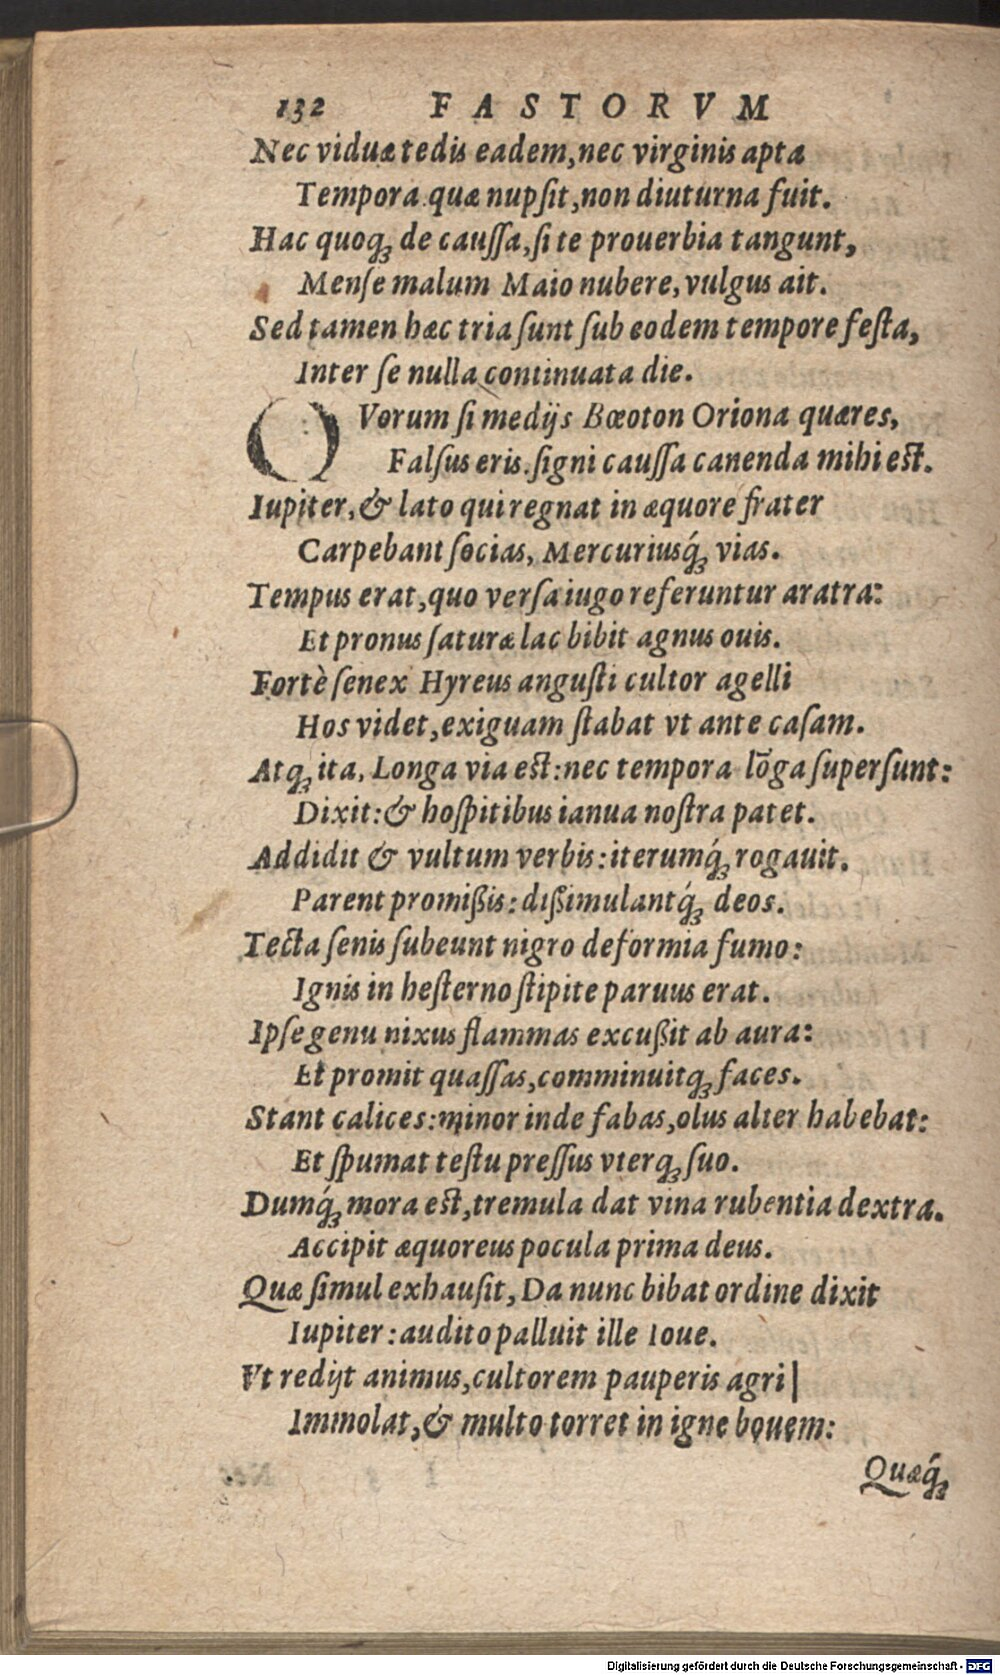 132 FASTORVM
Nec viduæ tedis eadem, nec virginis apta
Tempora. quæ nupſit, non diuturna fuit.
Hac quoq; de cauſſa, ſi te prouerbia tangunt,
Menſe malum Maio nubere, vulgus ait.
Sed tamen hæc tria ſunt ſub eodem tempore feſta,
Inter ſe nulla continuata die.
QVorum ſi medijs Bœoton Oriona quæres,
Falſus eris. ſigni cauſſa canenda mihi eſt.
Iupiter, & lato qui regnat in æquore frater
Carpebant ſocias, Mercuriusq́; vias.
Tempus erat, quo verſa iugo referuntur aratra:
Et pronus ſaturæ lac bibit agnus ouis.
Fortè ſenex Hyreus anguſti cultor agelli
Hos videt, exiguam ſtabat vt ante caſam.
Atq; ita, Longa via eſt: nec tempora lōga ſuperſunt:
Dixit: & hoſpitibus ianua noſtra patet.
Addidit & vultum verbis: iterumq́; rogauit.
Parent promißis: dißimulantq́; deos.
Tecta ſenis ſubeunt nigro deformia fumo:
Ignis in heſterno ſtipite paruus erat.
Ipſe genu nixus flammas excußit ab aura:
Et promit quaſſas, comminuitq; faces.
Stant calices: minor inde fabas, olus alter habebat:
Et ſpumat teſtu preſſus vterq; ſuo.
Dumq́; mora eſt, tremula dat vina rubentia dextra.
Accipit æquoreus pocula prima deus.
Quæ ſimul exhauſit, Da nunc bibat ordine dixit
Iupiter: audito palluit ille Ioue.
Vt redijt animus, cultorem pauperis agri|
Immolat, & multo torret in igne bouem:
Quæq́;
Digitalisierung gefördert durch die Deutsche Forschungsgemeinschaft - DFG